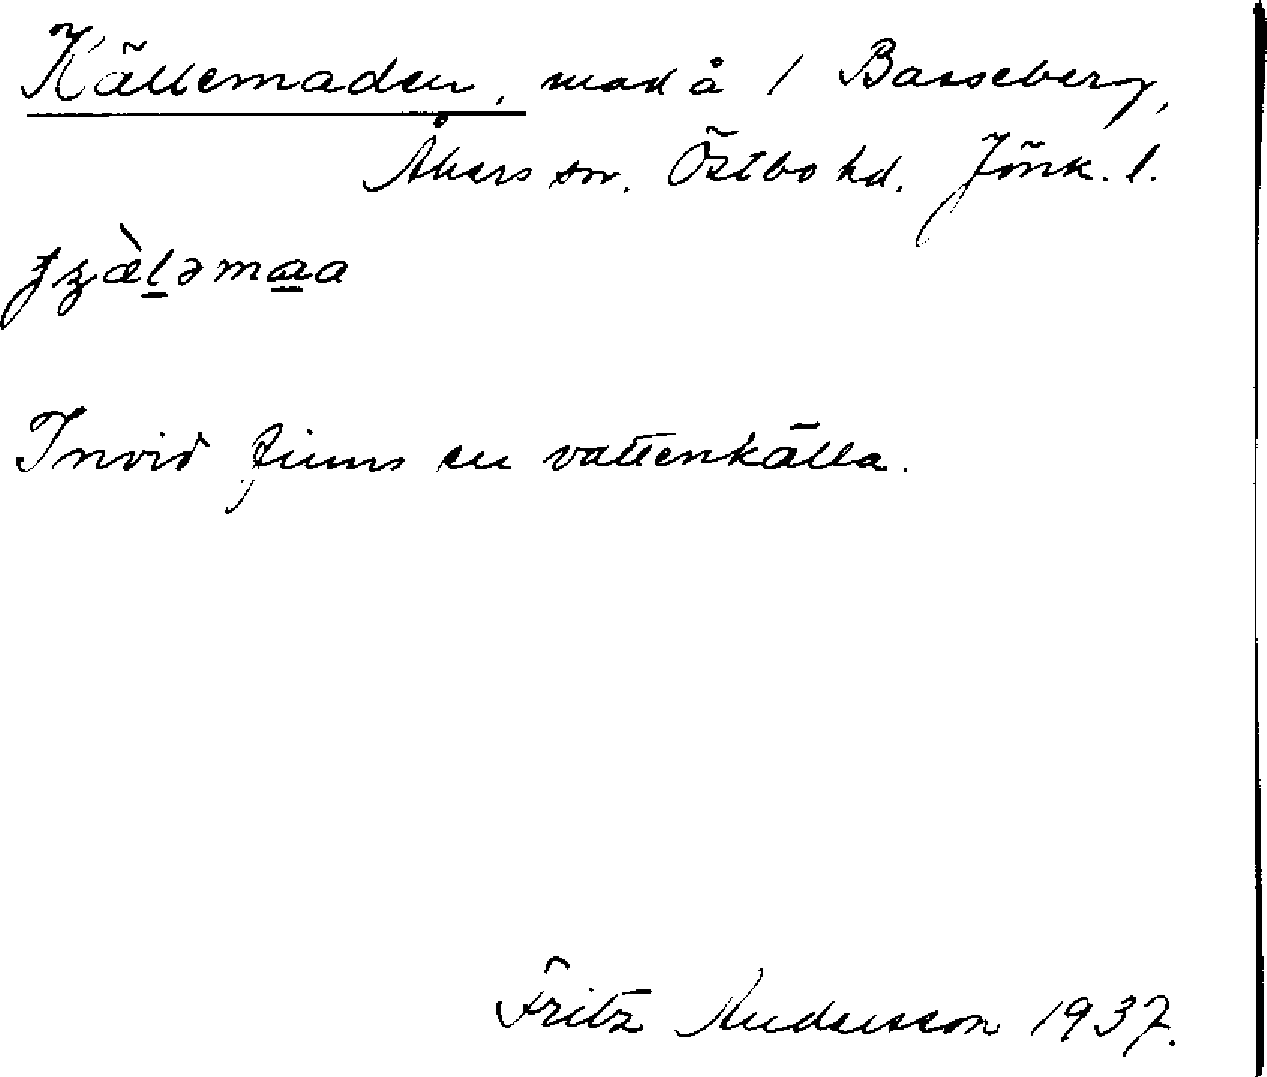 Källemaden, mad å 1 Basseberg,
Åkers sn. Östbo hd. Jönk. l.
Invid finns en vattenkälla.
Fritz Andersson 1937.